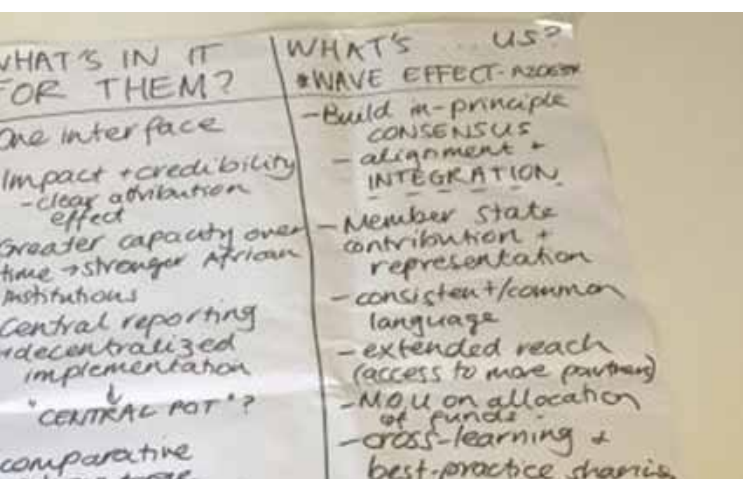 WHAT'S IN IT
FOR THEM?
One interface
Impact + credibility
- clear attribution
effect
Greater capacity over
time → stronger African
institutions
Central reporting
+ decentralized
implementation
↓
"CENTRAL POT"?
comparative
WHAT'S .. US?
*WAVE EFFECT -
- Build in-principle
CONSENSUS
- alignment +
INTEGRATION
- Member State
contribution +
representation
- consistent/common
language
- extended reach
(access to more partners)
- MOU on allocation
of funds.
- cross-learning +
best-practice sharing